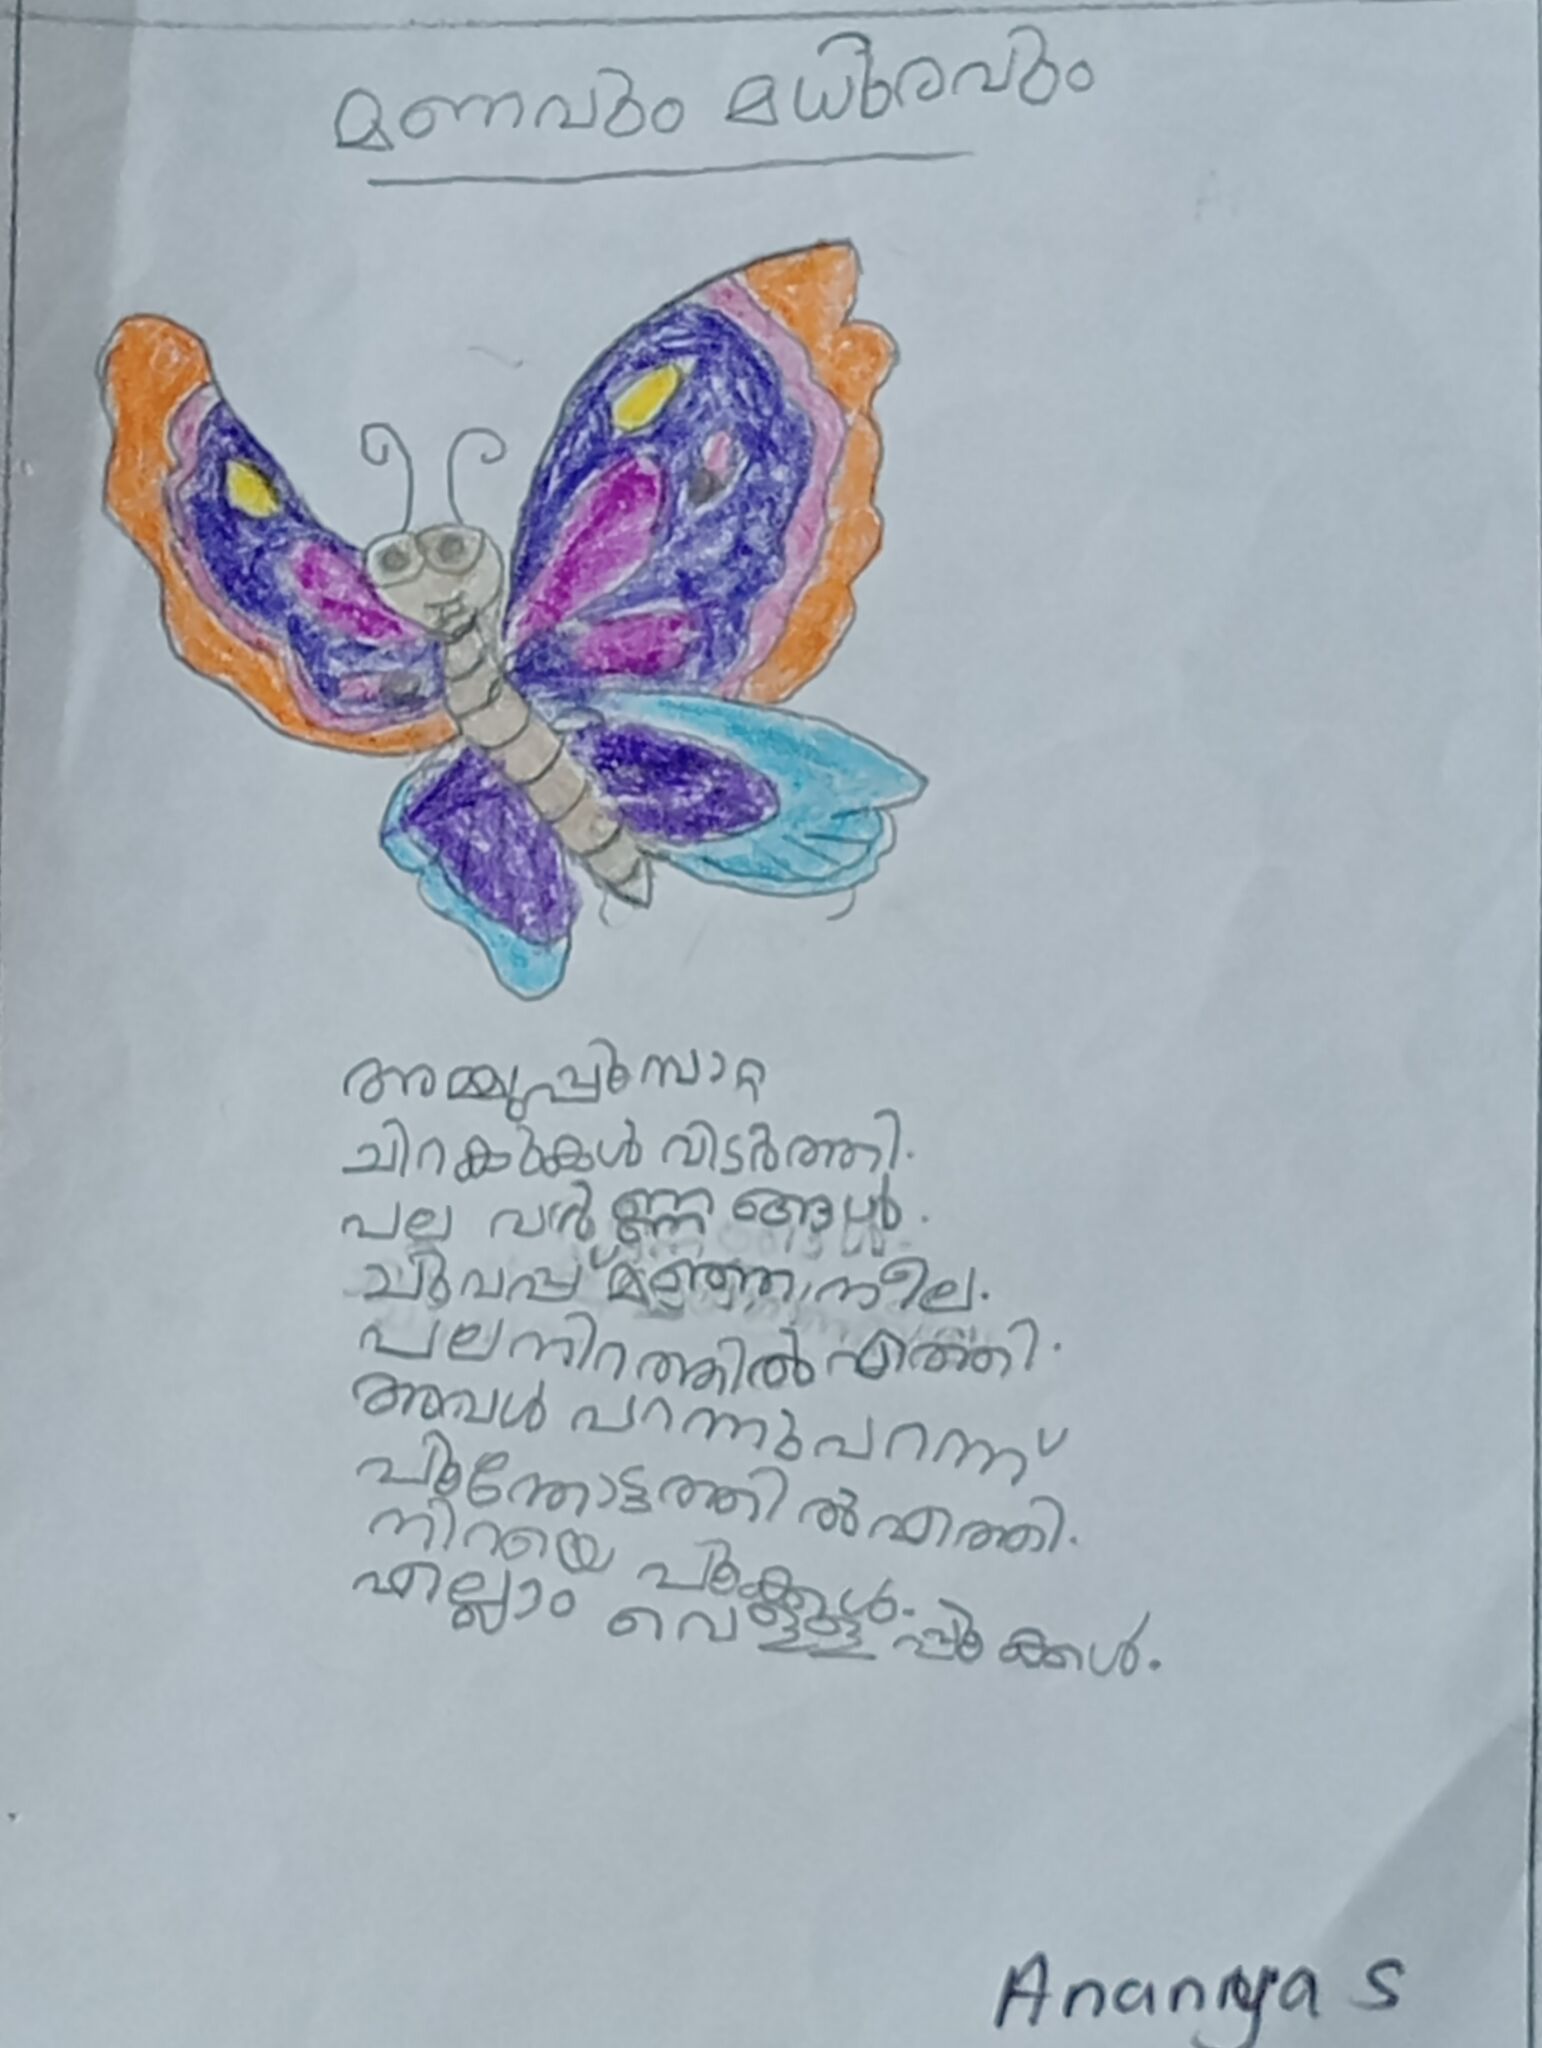 മണവും മധുരവും
അമ്മുപ്പൂമ്പാറ്റ
ചിറകുകൾ വിടർത്തി.
പല വർണ്ണങ്ങൾ.
ചുവപ്പ് മഞ്ഞ, നീല.
പലനിറത്തിൽ എത്തി.
അവൾ പറന്നുപറന്ന്
പൂന്തോട്ടത്തിൽ എത്തി.
നിറയെ പൂക്കൾ.
എല്ലാം വെള്ളപ്പൂക്കൾ.
Ananya S